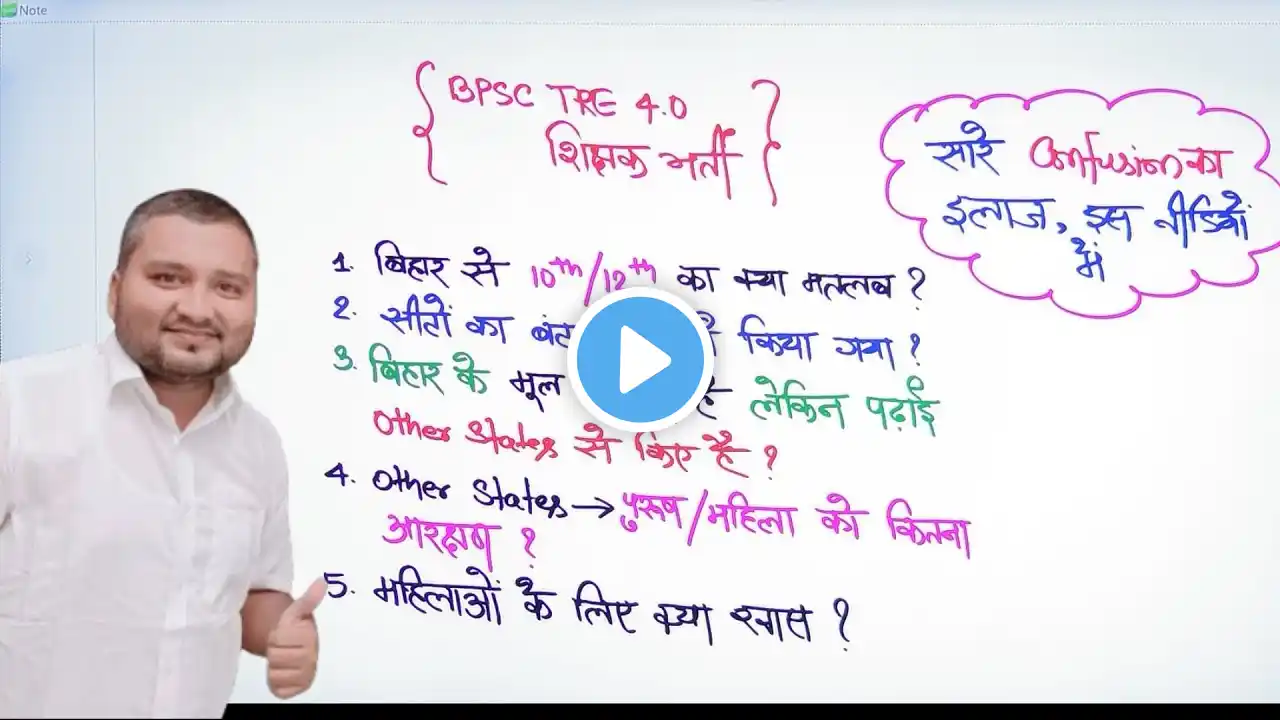 Note
{ BPSC TRE 4.0
शिक्षक भर्ती }
सारे Confusion का
इलाज, इस वीडियों
में
1. बिहार से 10th/12th का क्या मतलब ?
2. सीटों का किया गया ?
3. बिहार के मूल है लेकिन पढ़ाई
Other States से किए है ?
4. Other States → पुरूष/महिला को कितना
आरक्षण ?
5. महिलाओं के लिए क्या खास ?